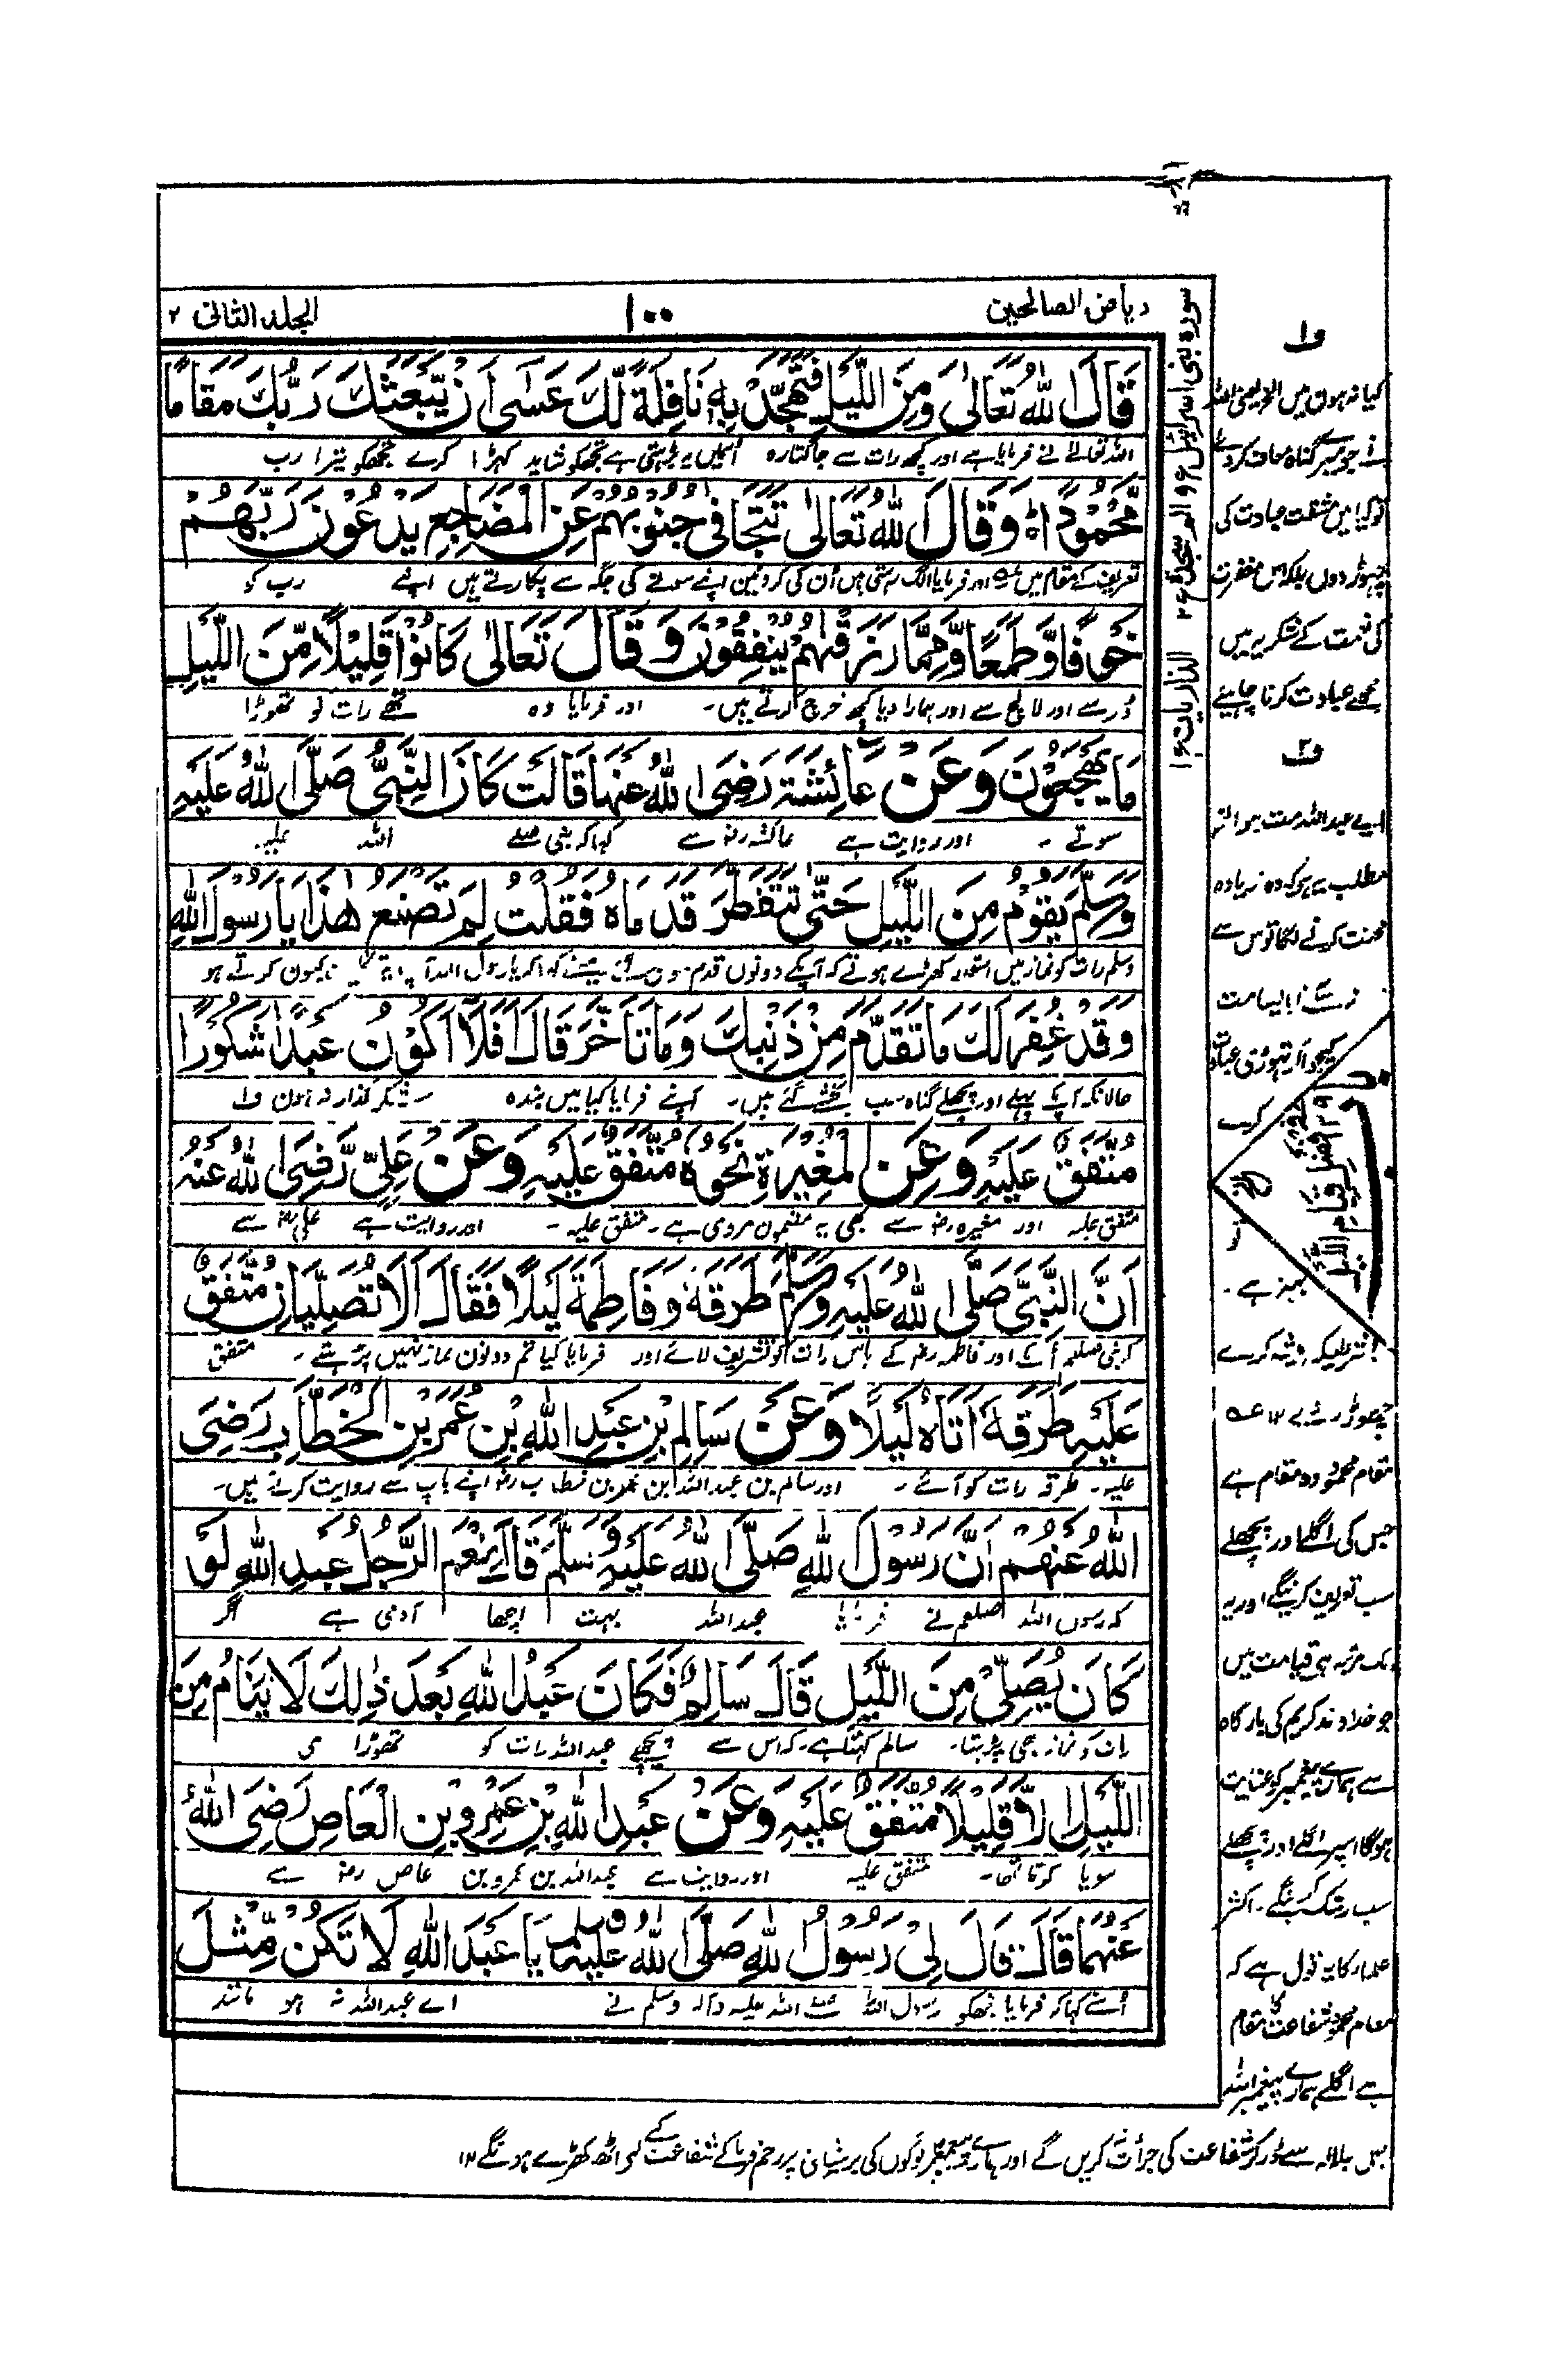 رياض الصالحين
١٠٠
الجلد الثانی ٢
قَالَ اللهُ تَعَالٰى وَمِنَ اللَّيْلِ فَتَهَجَّدْ بِهٖ نَافِلَةً لَّكَ عَسٰى اَنْ يَّبْعَثَكَ رَبُّكَ مَقَامًا
اللہ تعالے نے فرمایا ہے اور کچھ رات سے جاگتا رہ اسمیں یہ بڑہتی ہے تجھکو شاید کہڑا کرے تجھکو تیرا رب
مَّحْمُوْدًا وَقَالَ اللهُ تَعَالٰى تَتَجَافٰى جُنُوْبُهُمْ عَنِ الْمَضَاجِعِ يَدْعُوْنَ رَبَّهُمْ
تعریف کے مقام میں اور فرمایا الگ رہتی ہیں اُن کی کروٹین اپنے سونے کی جگہ سے پکارتے ہیں اپنے رب کو
خَوْفًا وَّطَمَعًا وَّمِمَّا رَزَقْنٰهُمْ يُنْفِقُوْنَ وَقَالَ تَعَالٰى كَانُوْا قَلِيْلًا مِّنَ اللَّيْلِ
ڈر سے اور لالچ سے اور ہمارا دیا کچھ خرچ کرتے ہیں۔ اور فرمایا وہ تھے رات کو تھوڑا
مَا يَهْجَعُوْنَ وَعَنْ عَائِشَةَ رَضِىَ اللهُ عَنْهَا قَالَتْ كَانَ النَّبِىُّ صَلَّى اللهُ عَلَيْهِ
سوتے ۔ اور روایت ہے عائشہ رضؓ سے کہا کہ نبی صلے اللہ علیہ
وَسَلَّمَ يَقُوْمُ مِنَ اللَّيْلِ حَتّٰى تَتَفَطَّرَ قَدَمَاهُ فَقُلْتُ لِمَ تَصْنَعُ هٰذَا يَا رَسُوْلَ اللهِ
وسلم رات کو نماز میں اسقدر کھڑے ہوتے کہ آپکے دونوں قدم کیون کرتے ہو
وَقَدْ غُفِرَ لَكَ مَا تَقَدَّمَ مِنْ ذَنْبِكَ وَمَا تَأَخَّرَ قَالَ اَفَلَا اَكُوْنُ عَبْدًا شَكُوْرًا
حالانکہ آپکے پہلے اور پچھلے گناہ سب بخشے گئے ہیں۔ آپنے فرمایا کیا میں بندہ شکر گذار نہ ہون ف۱
مُتَّفَقٌ عَلَيْهِ وَعَنِ الْمُغِيْرَةِ نَحْوَهُ مُتَّفَقٌ عَلَيْهِ وَعَنْ عَلِىٍّ رَّضِىَ اللهُ عَنْهُ
متفق علیہ اور مغیرہ رضؓ سے بھی یہ مضمون مروی ہے۔ متفق علیہ۔ اور روایت ہے علی رضؓ سے
اَنَّ النَّبِىَّ صَلَّى اللهُ عَلَيْهِ وَسَلَّمَ طَرَقَهُ وَفَاطِمَةَ لَيْلًا فَقَالَ اَلَا تُصَلِّيَانِ مُتَّفَقٌ
کہ نبی صلعم اُ کے اور فاطمہ رضؓ کے پاس رات کو تشریف لائے اور فرمایا کیا تم دونون نماز نہیں پڑہتے ۔ متفق
عَلَيْهِ طَرَقَهُ اَتَاهُ لَيْلًا وَعَنْ سَالِمِ بْنِ عَبْدِ اللهِ بْنِ عُمَرَ بْنِ الْخَطَّابِ رَضِىَ
علیہ۔ طرقہ رات کو آئے ۔ اور سالم بن عبد اللہ ابن عمر بن خطاب رضؓ اپنے باپ سے روایت کرتے ہیں۔
اللهُ عَنْهُمْ اَنَّ رَسُوْلَ اللهِ صَلَّى اللهُ عَلَيْهِ وَسَلَّمَ قَالَ نِعْمَ الرَّجُلُ عَبْدُ اللهِ لَوْ
کہ رسول اللہ صلعم نے فرمایا عبد اللہ بہت اچھا آدمی ہے اگر
كَانَ يُصَلِّىْ مِنَ اللَّيْلِ قَالَ سَالِمٌ فَكَانَ عَبْدُ اللهِ بَعْدَ ذٰلِكَ لَا يَنَامُ مِنَ
رات کو نماز بھی پڑہتا۔ سالم کہتا ہے۔ کہ اس سے پیچھے عبد اللہ رات کو تھوڑا ہی
اللَّيْلِ اِلَّا قَلِيْلًا مُتَّفَقٌ عَلَيْهِ وَعَنْ عَبْدِ اللهِ بْنِ عَمْرِو بْنِ الْعَاصِ رَضِىَ اللهُ
سویا کرتا تھا۔ متفق علیہ اور روایت ہے عبد اللہ بن عمرو بن عاص رضؓ سے
عَنْهُمَا قَالَ قَالَ لِىْ رَسُوْلُ اللهِ صَلَّى اللهُ عَلَيْهِ وَسَلَّمَ يَا عَبْدَ اللهِ لَا تَكُنْ مِّثْلَ
اُسنے کہا کہ فرمایا مجھکو رسول اللہ صلے اللہ علیہ وآلہ وسلم نے اے عبد اللہ نہ ہو مانند
سورہ بنی اسرائیل ع۹ والم سجدۃ ع۲ الذاریات ع۱
ف۱
کیا نہ ہون میں الخ یعنی اللہ
نے جو میرے گناہ معاف کردئے
تو کیا میں مشقت عبادت کی
چھوڑ دوں بلکہ اس مغفرت
کی نعمت کے شکریہ میں
مجھے عبادت کرنا چاہیئے
ف۲
اے عبد اللہ مت ہو الخ
مطلب یہ ہے کہ وہ زیادہ
محنت کرنے لگا تو اس سے
کیجو اور تہوڑی عبادت
بہتر ہے ۔
بشرطیکہ ہمیشہ کرے
مقام محمود وہ مقام ہے
جس کی اگلے اور پچھلے
سب تعریف کرینگے اور یہ
مرتبہ ہی قیامت میں
جو خداوند کریم کی بارگاہ
سے ہمارے پیغمبر کو عنایت
ہوگا اسپر اگلے اور پچھلے
سب رشک کرینگے۔ اکثر
علماء کا یہ قول ہے کہ
مقام محمود شفاعت کا مقام
ہے اگلے ہمارے پیغمبر اللہ
کریں گے اور ہمارے پیغمبر لوگوں کی پریشانی پر رحم فرما کے شفاعت کے لئے اٹھ کھڑے ہونگے ١٢